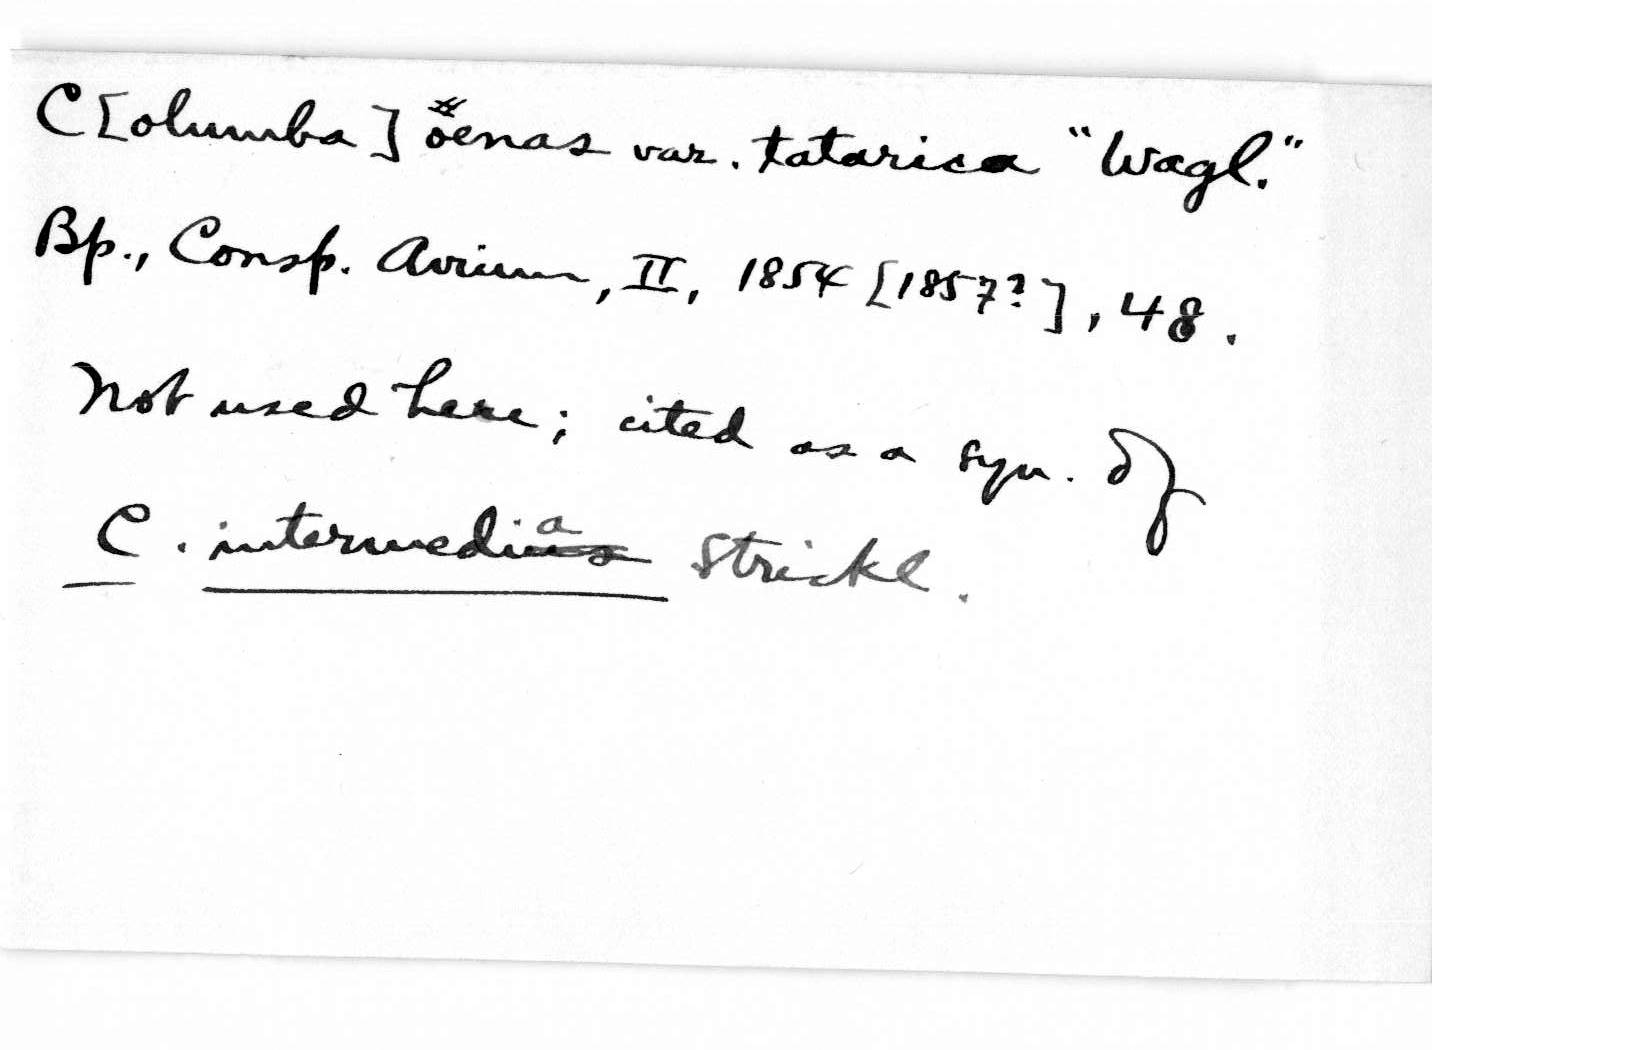 C[olumba] oenas var. tatarica "Wagl."
Bp., Consp. Avium, II, 1854 [1857?], 48.
Not used here; cited as a syn. of
C. intermedia Strickl.